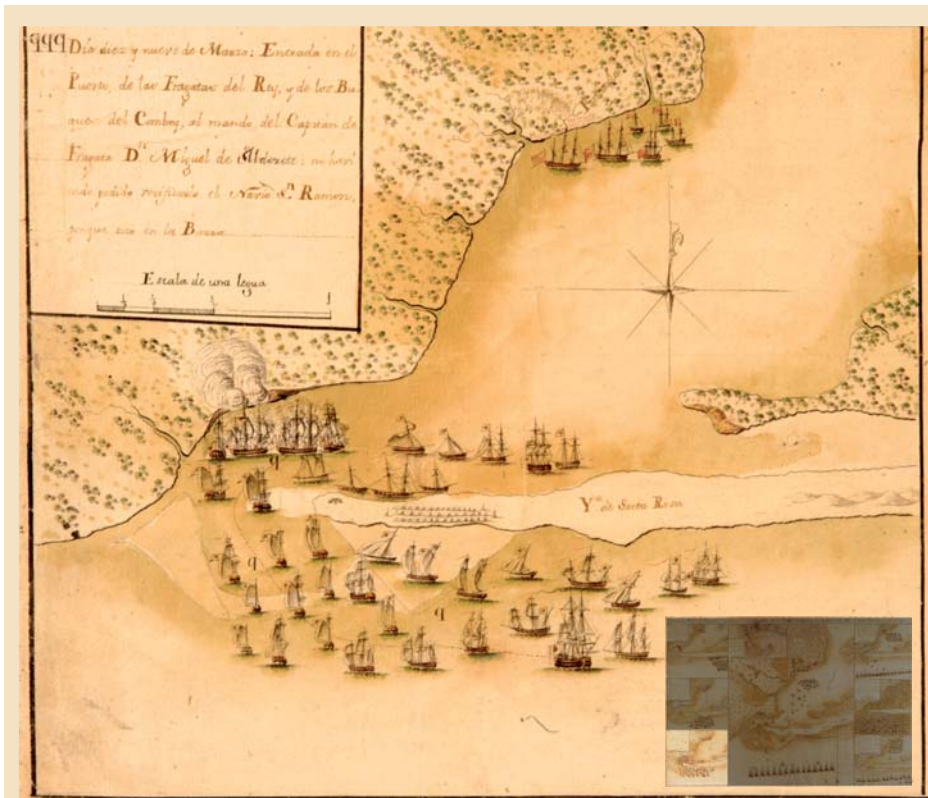 qqq Día diez y nueve de Marzo: Entrada en el
Puerto, de las Fragatas del Rey, y de los Bu
ques del Comboy, al mando del Capitan de
Fragata Dn Miguel de
podido el Navio Sn Ramon,
porque en la Barra
Escala de una legua
Y.la de Santa Rosa
q
q
q